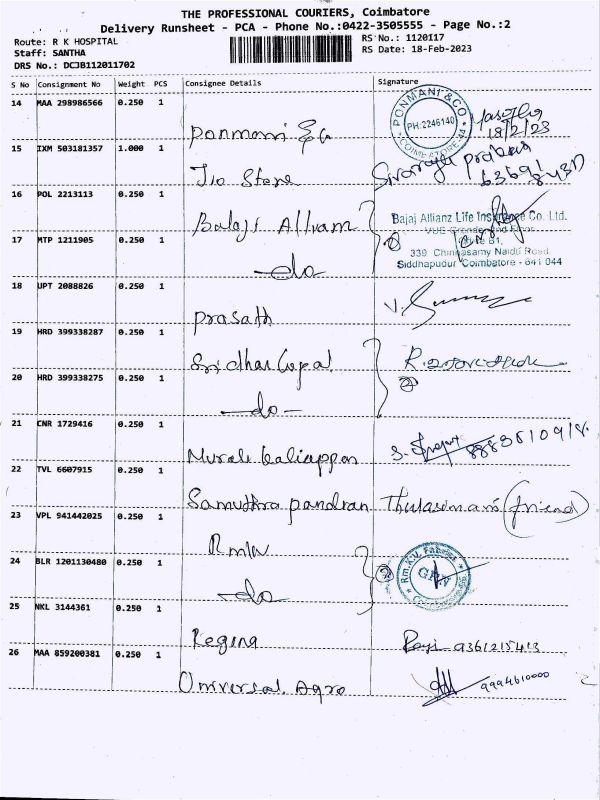 THE PROFESSIONAL COURIERS, Coimbatore
Delivery Runsheet - PCA - Phone No.:0422-3505555 - Page No.:2
Route: R K HOSPITAL
RS No.: 1120117
Staff: SANTHA
RS Date: 18-Feb-2023
DRS No.: DCJB112011702
S No Consignment No Weight PCS Consignee Details Signature
14 MAA 298986566 0.250 1
PONMANI & CO
PH:2246140
COIMBATORE-44
Ponmani & Co
18/2/23
15 IXM 503181357 1.000 1
Jio Store
16 POL 2213113 0.250 1
Balaji Allvam
Bajaj Allianz Life Insurance Co. Ltd.
17 MTP 1211905 0.250 1
339 Chinnasamy Naidu Road
Siddhapudur Coimbatore - 641 044
-do-
②
18 UPT 2088826 0.250 1
Prasath
19 HRD 399338287 0.250 1
Sridhar Gopal
20 HRD 399338275 0.250 1
②
-do-
21 CNR 1729416 0.250 1
Murali Kaliappan
22 TVL 6607915 0.250 1
Samuthra pandian Thulasimani (friend)
23 VPL 941442025 0.250 1
Rmkv
24 BLR 1201130480 0.250 1
②
Rm.K.V. Fabrics
Coimbatore
-do-
25 NKL 3144361 0.250 1
Regina
9361215413
26 MAA 859200381 0.250 1
Universal Agro
9994610000